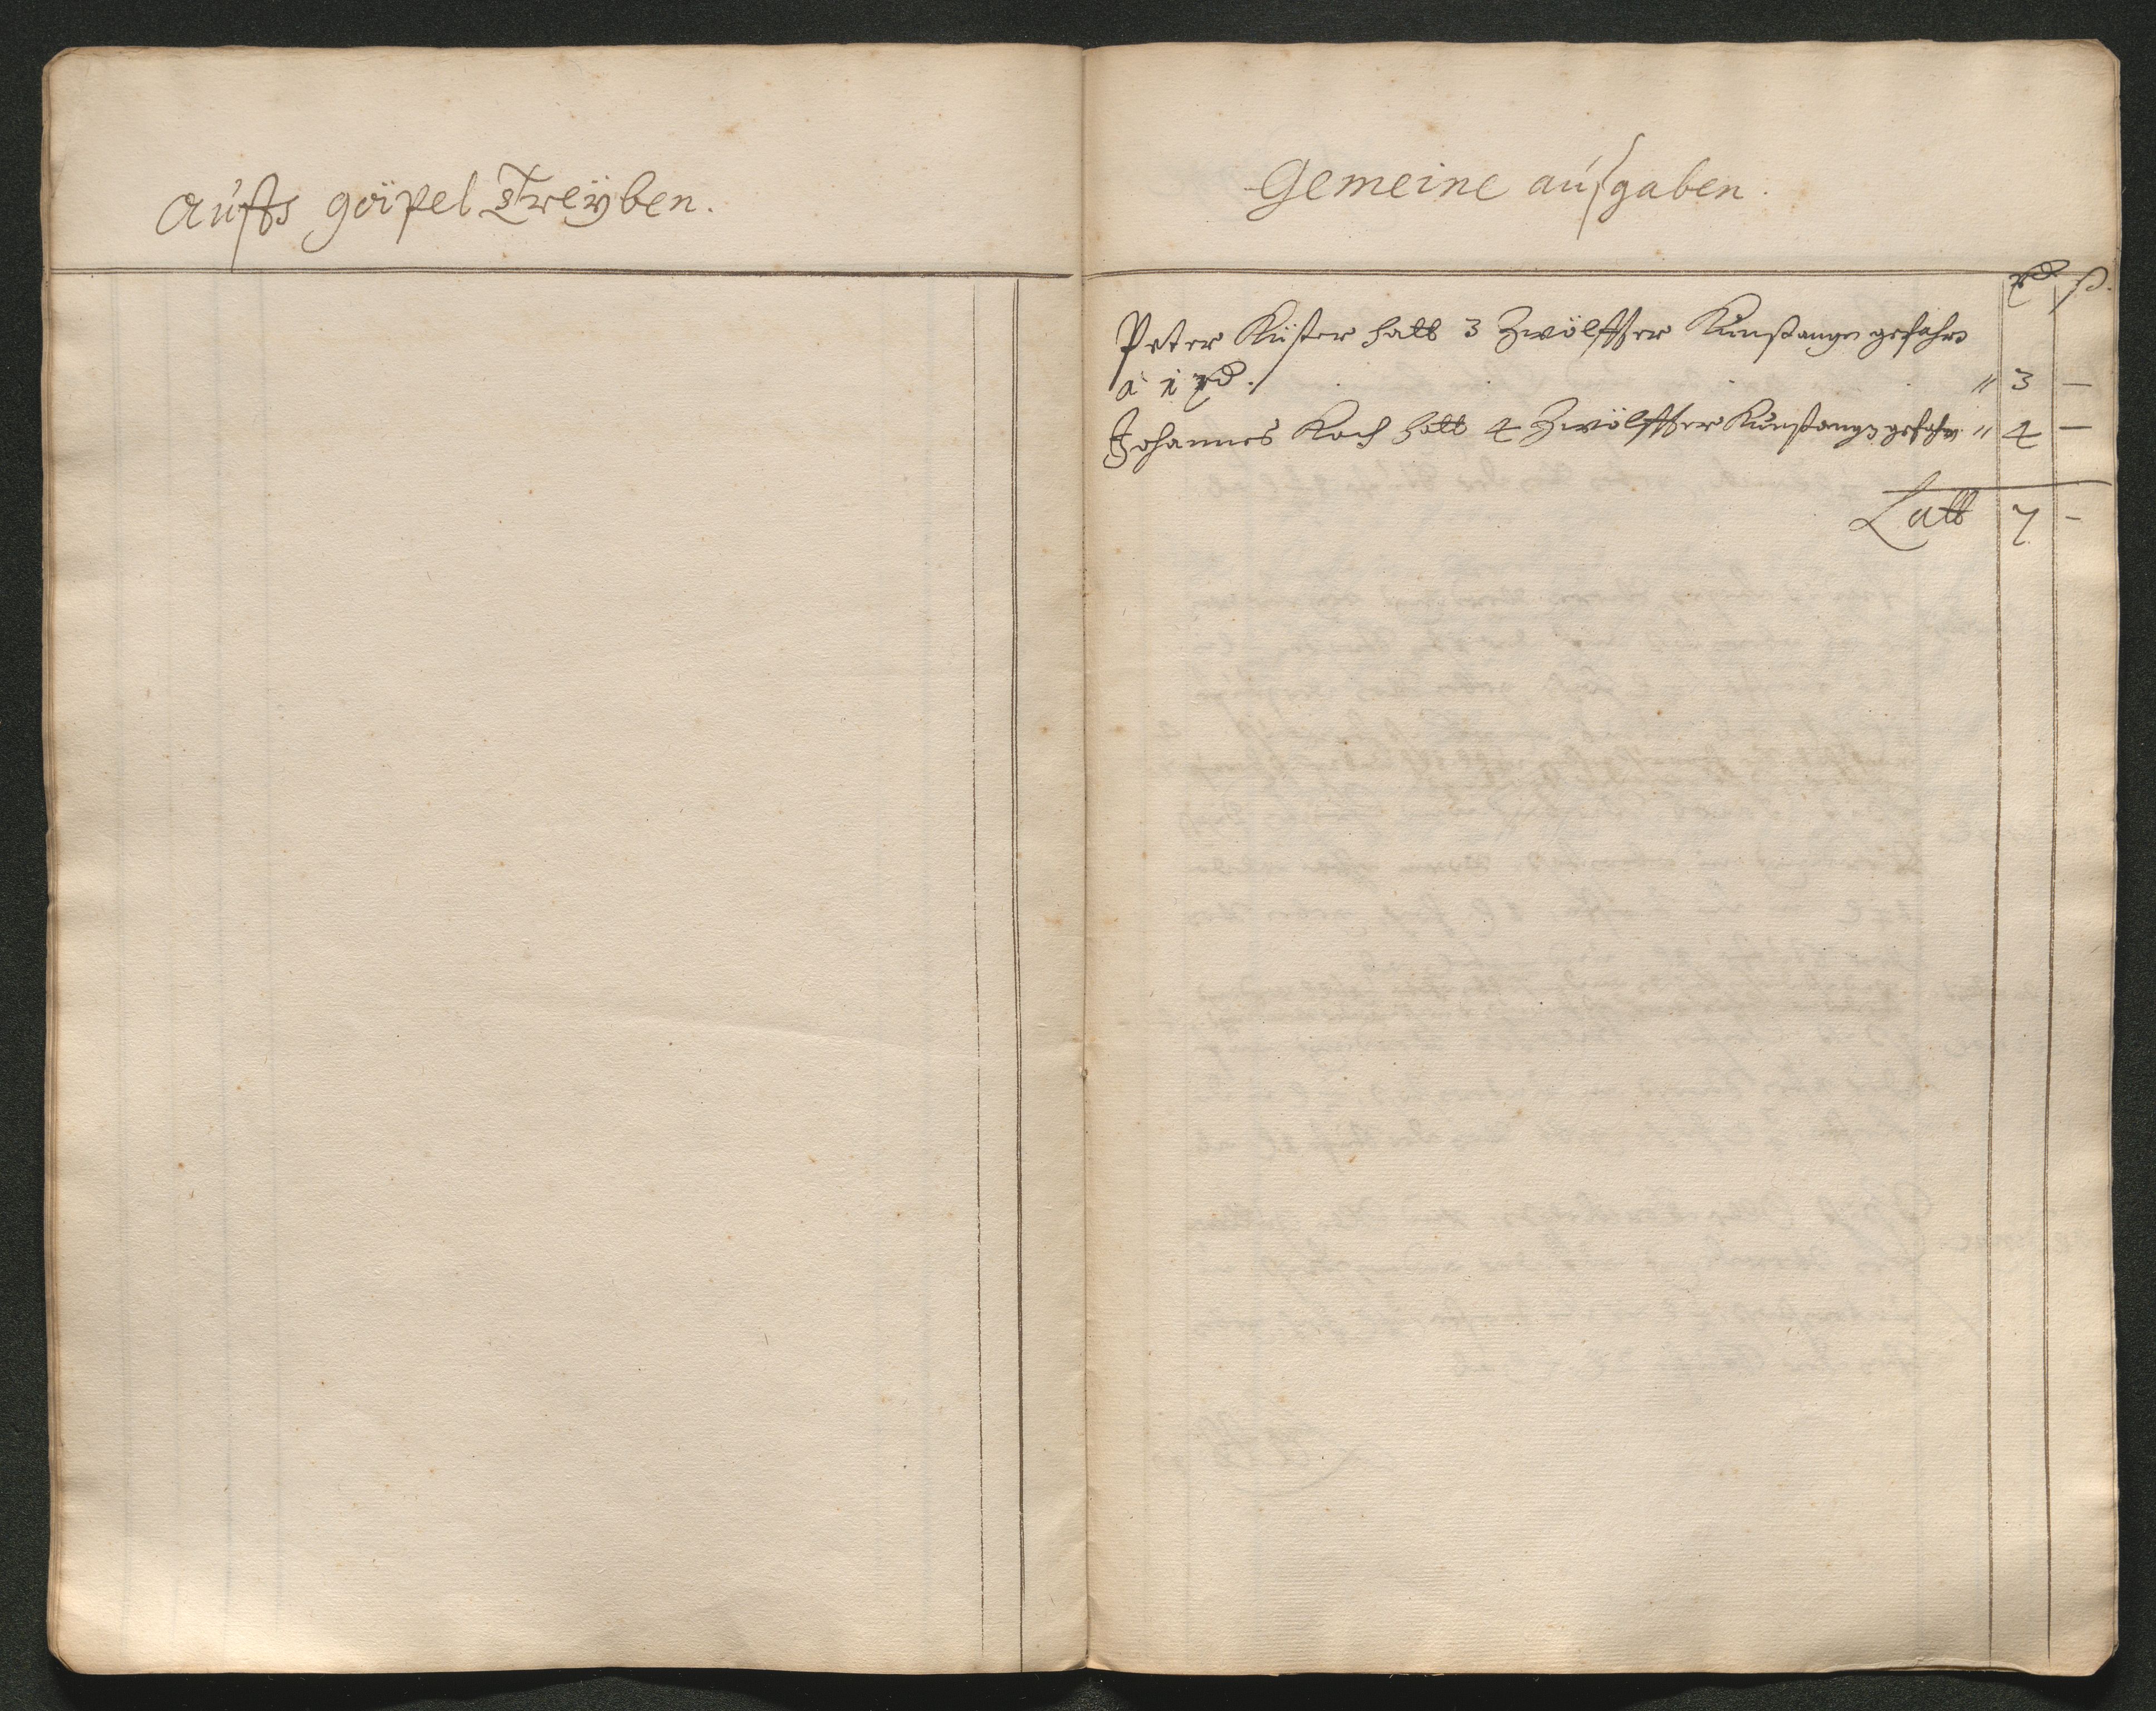 Aüffs göipel Treÿben.
Gemeine aüßgaben.
rd ß.
Peter Küster hatt 3 Zwölffter Künstangen gefahrn
a 1 rd. " 3 —
Johannes Koch hatt 4 Zwölffter Künstangen gefahrn " 4 —
Latt 7 —